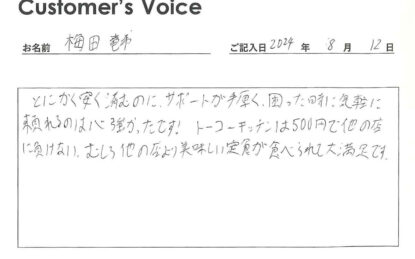 Customer's Voice
お名前 梅田 ご記入日 2024 年 8 月 12 日
とにかく安く済むのに、サポートが手厚く、困った時に気軽に
頼れるのは心強かったです! トーコーキッチンは500円で他の店
に負けない、むしろ他の店より美味しい定食が食べられて大満足です。